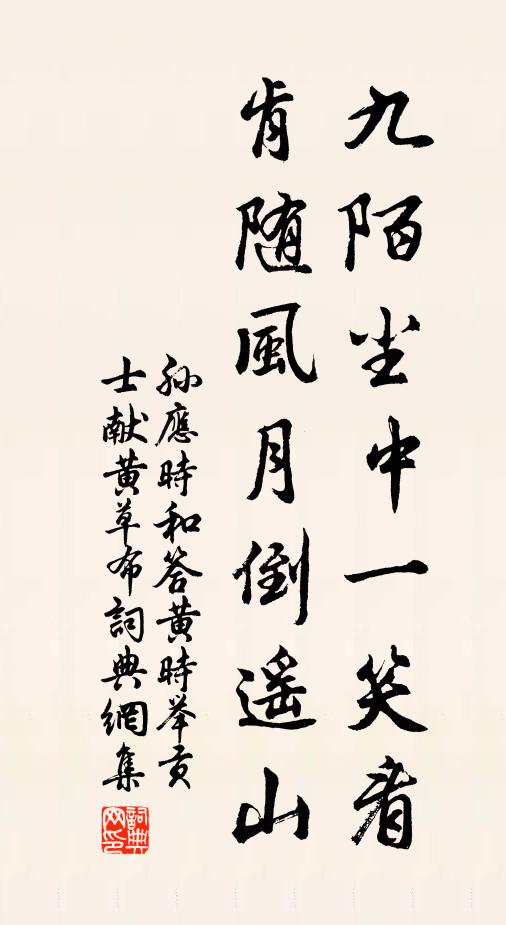 九陌尘中一笑看
肯随風月倒遥山
孙應時和答黄時举贡
士献黄草布詞典網集
詞典
网印